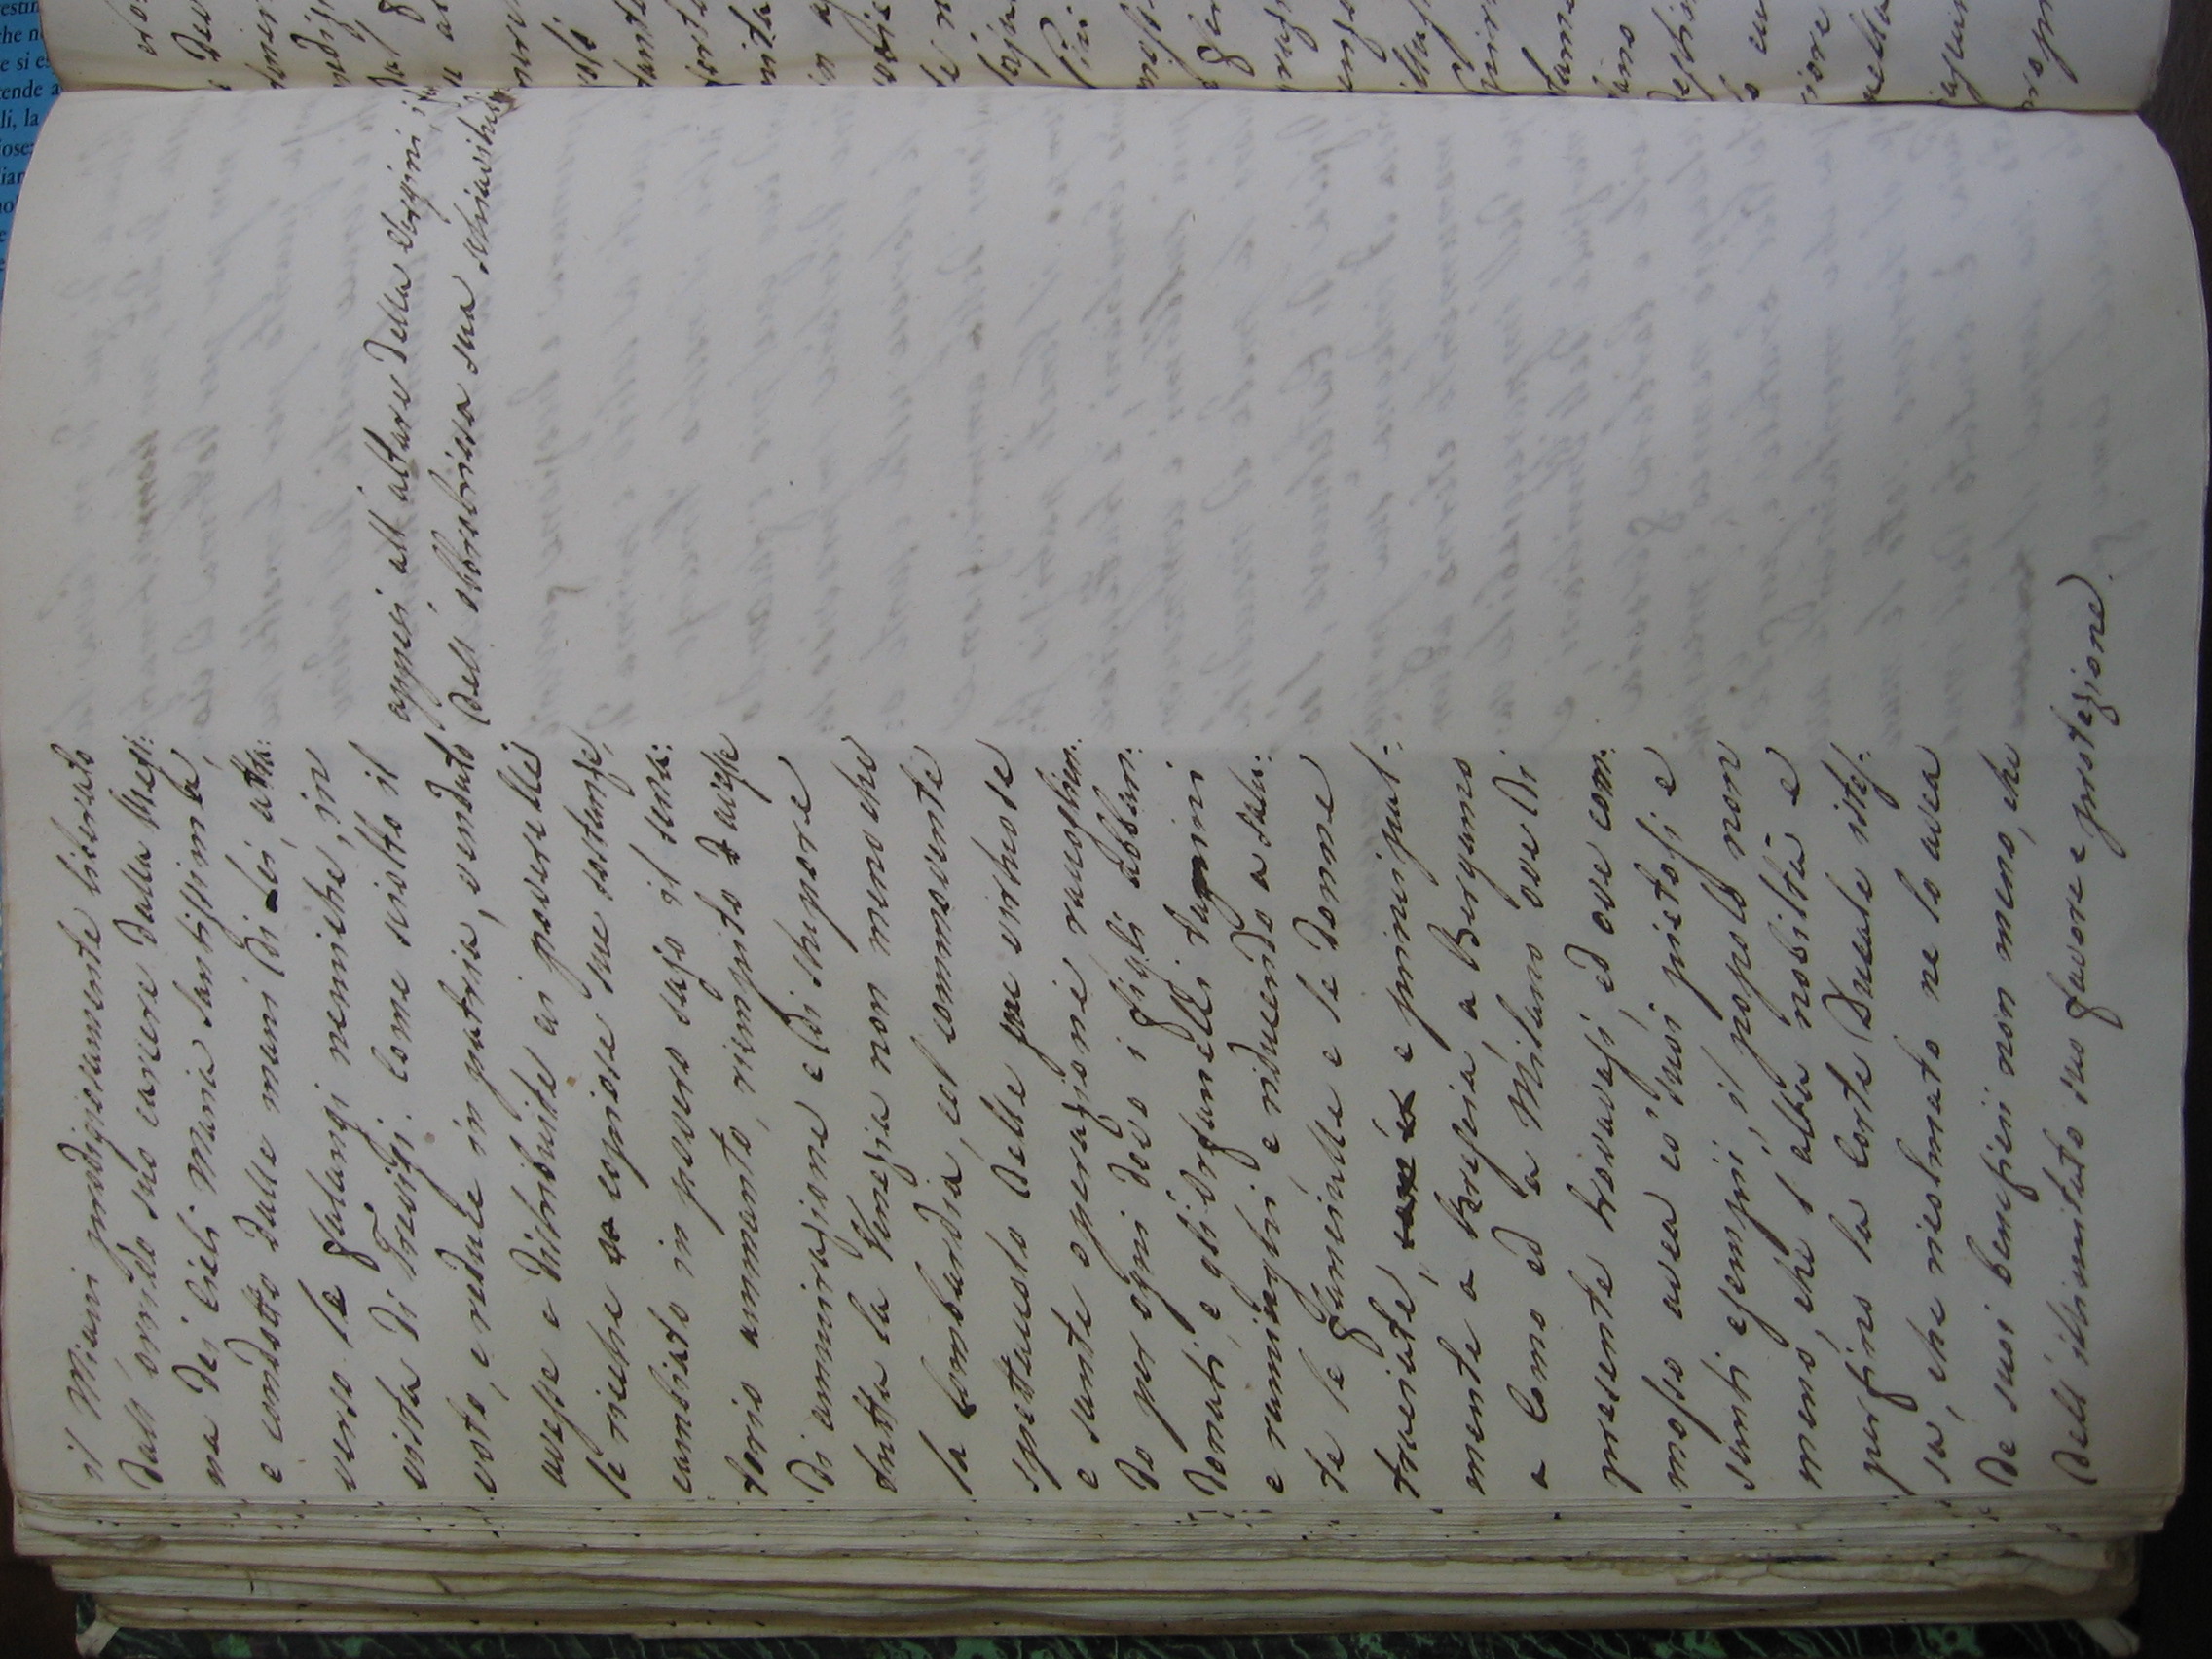 il Miani prodigiosamente liberato
dall' orrido suo carcere dalla Regi:
na dei Cieli Maria Santissima,
e condotto dalle mani di Lei, attra:
verso le falangi nemiche, in
vista di Trevigi. Come sciolto il
voto, e redule in patria, venduto
avesse e distribuite ai poverelli
le ricche e copiose sue sostanze,
cambiato in povero sajo il sena:
torio ammanto, riempito avesse
di ammirazione e di stupore
tutta la Venezia non meno che
la Lombardia, col commovente
spettacolo delle sue virtuose
e sante operazioni raccoglien:
do per ogni dove i figli abban:
donati, e gli orfanelli tapini
e raminghi e riducendo a salu:
te le fanciulle e le donne
traviate, e principal:
mente a Brescia, a Bergamo
a Como ed a Milano ove di
presente trovavasi, ed ove com:
mosso avea co' suoi pietosi e
santi esempii, il popolo non
meno, che l' alta nobiltà e
perfino la Corte Ducale istes:
sa, che ricolmato ne lo avea
de suoi beneficii non meno, che
dell' illimitato suo favore e protezione.
appesi all' altare della Vergini i
dell' obbrobriosa sua schiavitù